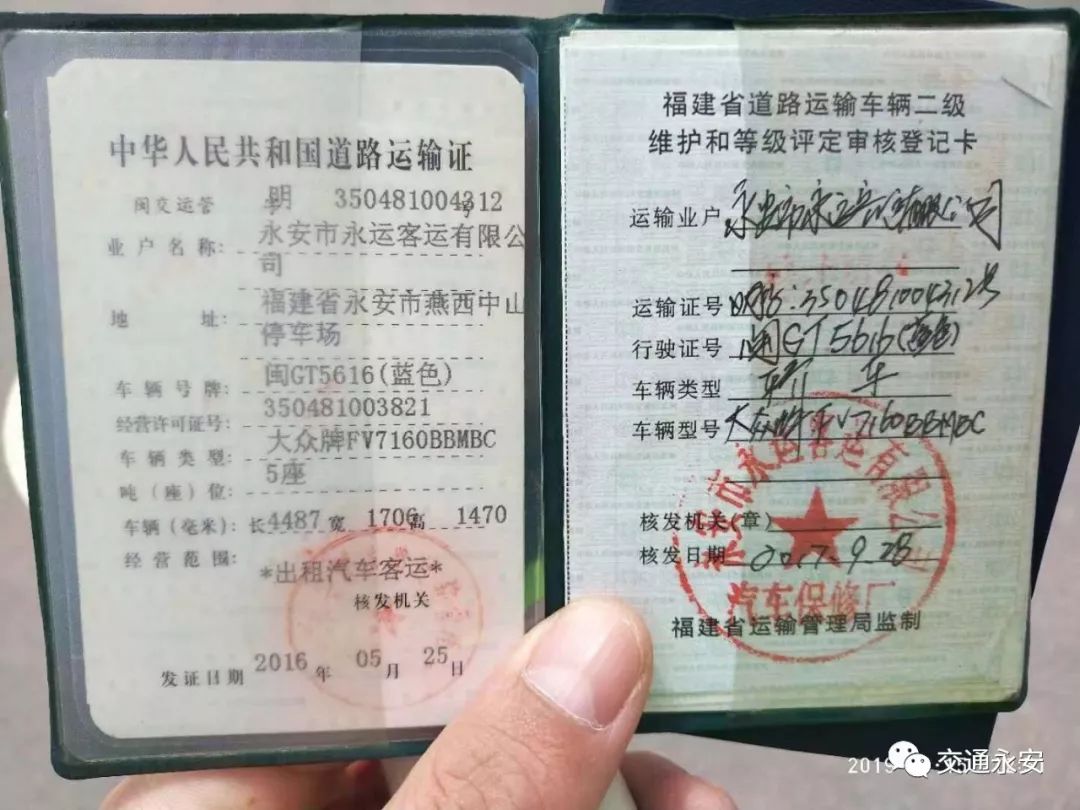 中华人民共和国道路运输证
闽交运管 明 350481004312
号
业户名称: 永安市永运客运有限公
司
地 址: 福建省永安市燕西中山
停车场
车辆号牌: 闽GT5616(蓝色)
经营许可证号: 350481003821
车辆类型: 大众牌FV7160BBMBC
吨(座)位: 5座
车辆(毫米): 长4487宽 1706高 1470
经营范围:
*出租汽车客运*
核发机关
发证日期 2016 年 05 月 25 日
福建省道路运输车辆二级
维护和等级评定审核登记卡
运输业户 永安市永运客运有限公司
运输证号 350481004312号
行驶证号 闽GT5616(蓝色)
车辆类型 轿车
车辆型号 大众牌FV7160BBMBC
核发机关(章)
核发日期 2017.9.28
永安市永运客运有限公司
汽车保修厂
福建省运输管理局监制
2019
交通永安